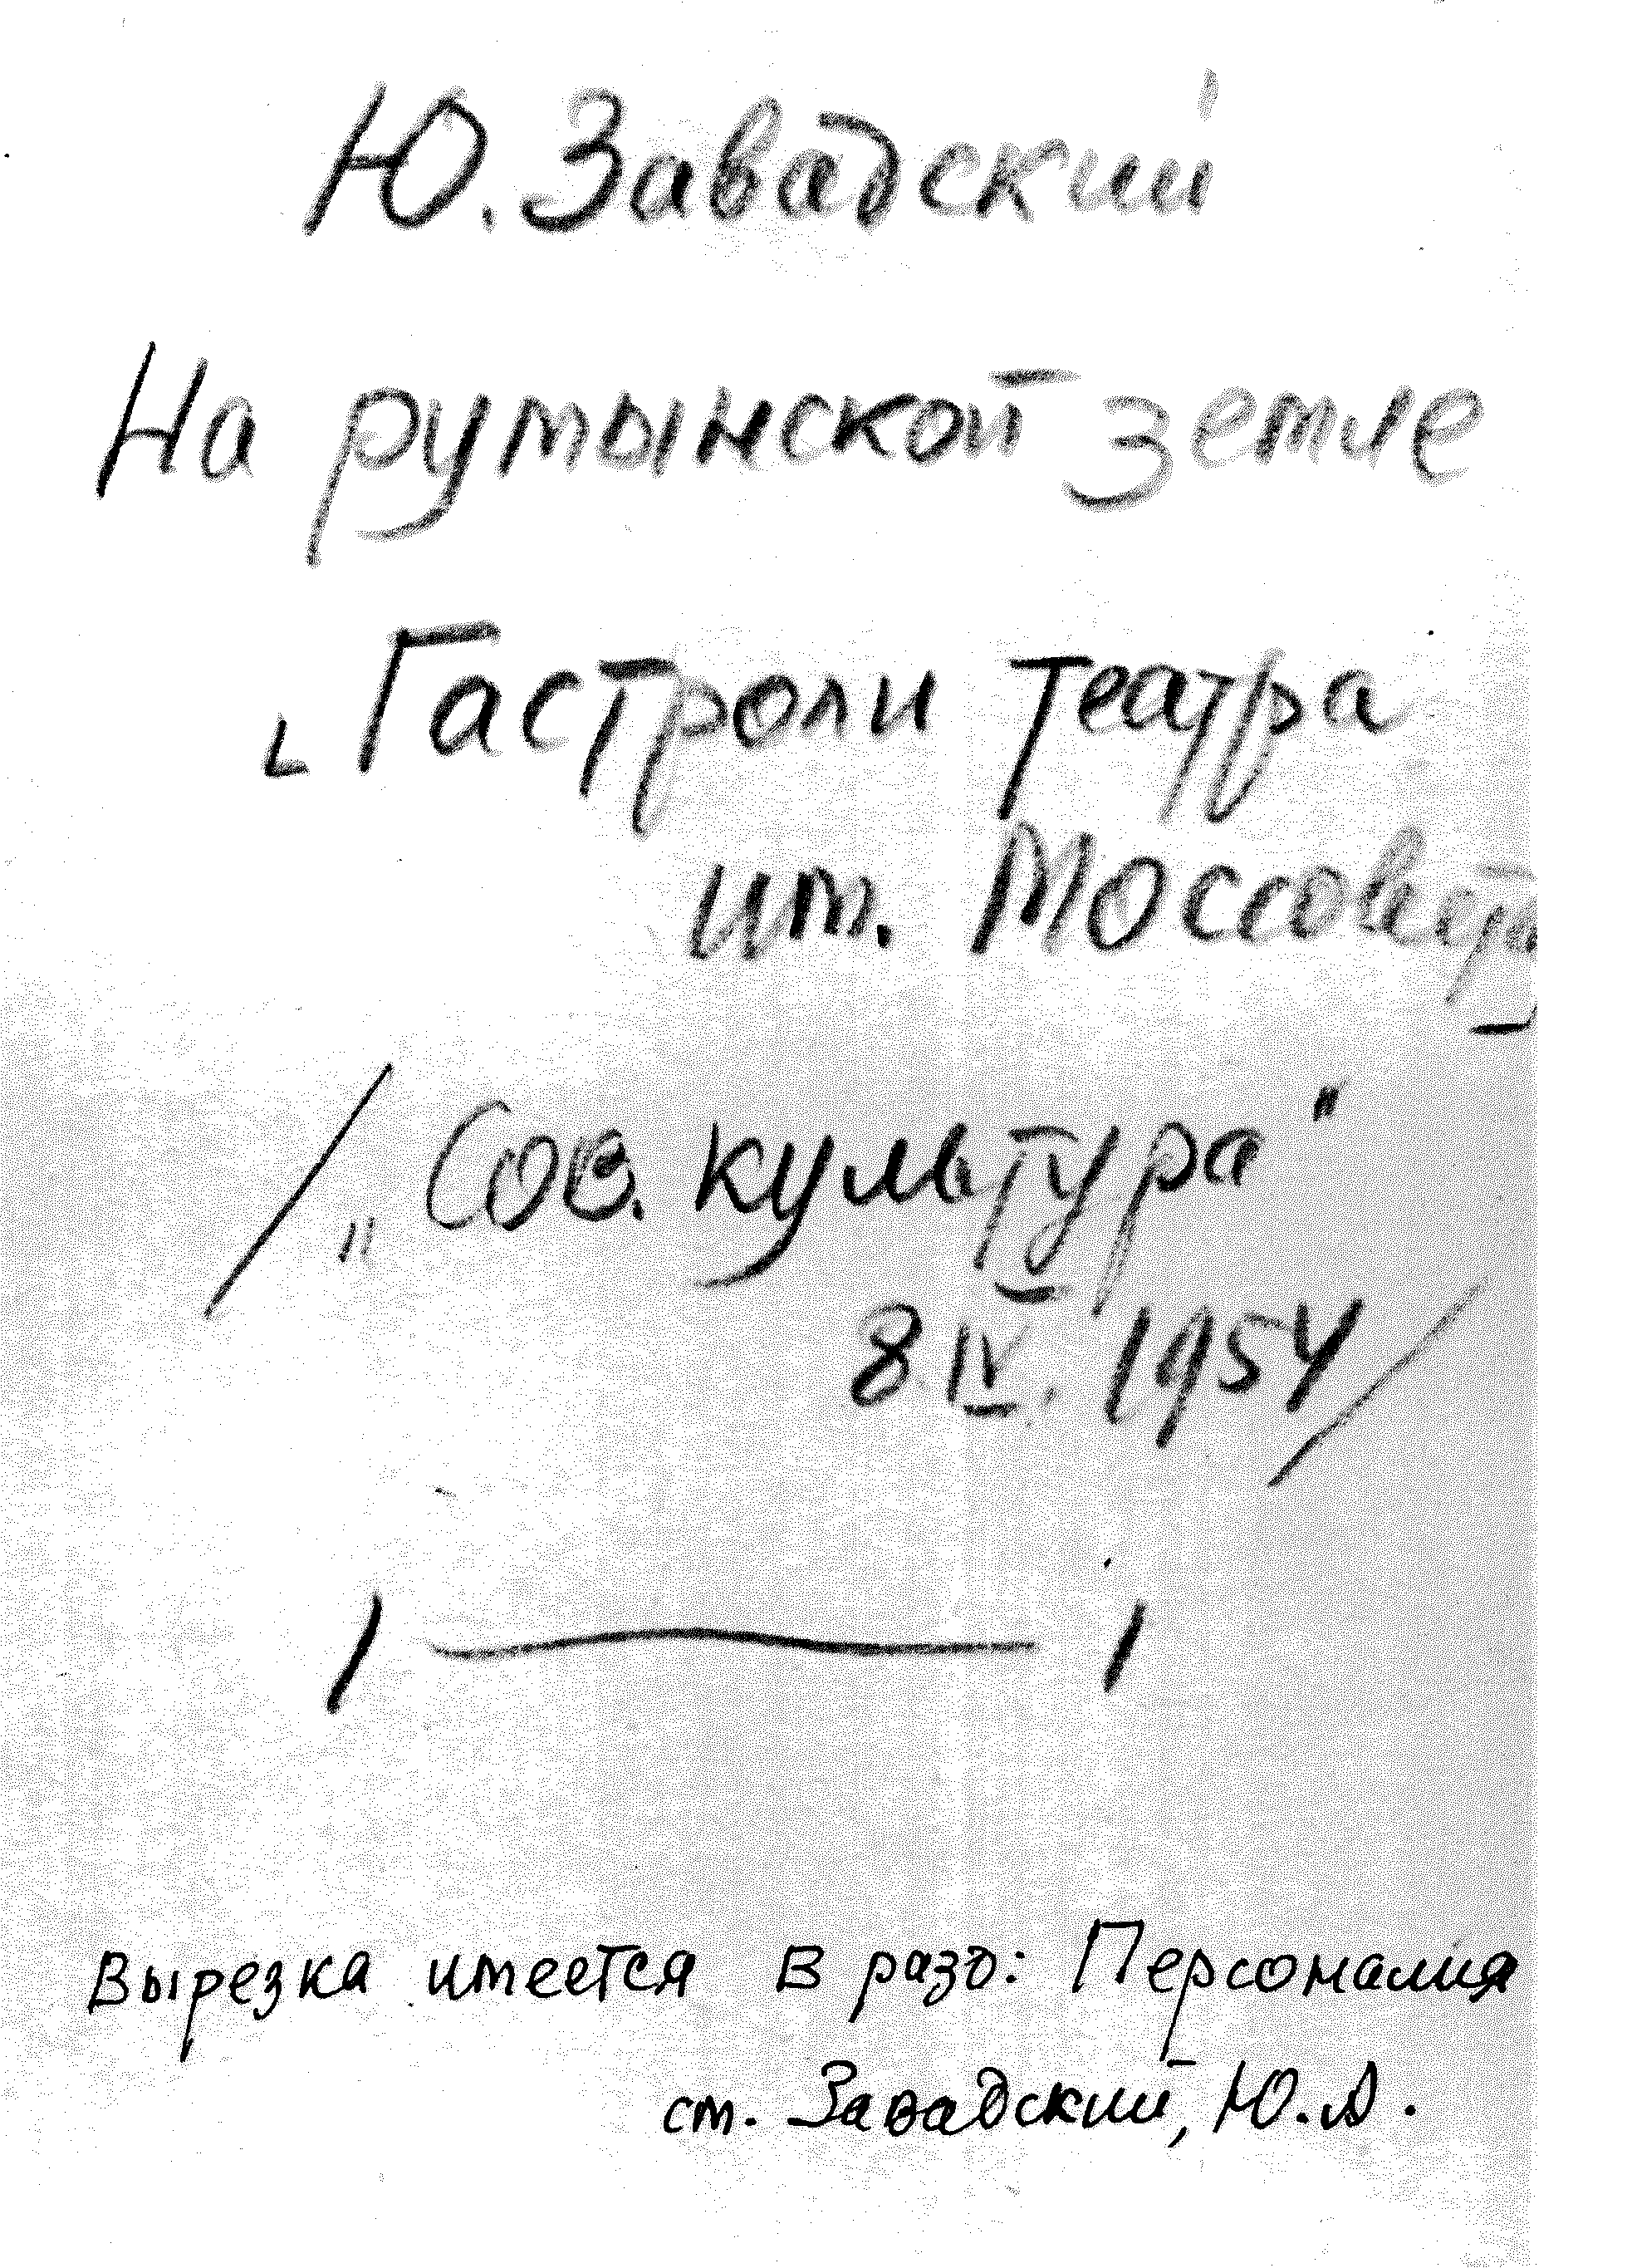 Ю. Завадский
На румынской земле
Гастроли театра
им. Моссовета
/„Сов. культура"
8 IV. 1954/
Вырезка имеется в разд: Персоналия
ст. Завадский, Ю.А.